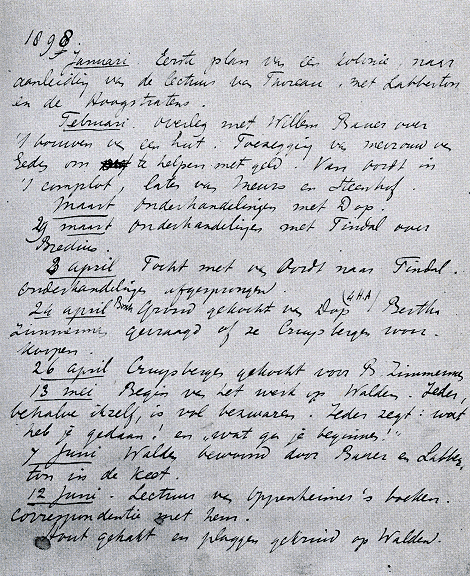 1898.
Januari Eerste plan van een kolonie, naar
aanleiding van de lectuur van Thoreau, met Labberton
en de Hoogstratens.
Februari. overleg met Willem Bauer over
't bouwen van een hut. Toezegging van mevrouw van
Eeden om te helpen met geld. Van Oordt in
't complot, later van Meurs en Steenhof.
Maart onderhandelingen met Dop.
29 maart onderhandelingen met Tindal over
Bredius.
3 april Tocht met van Oordt naar Tindal.
onderhandelingen afgesprongen.
24 april Grond gekocht van Dop (4 H.A) Bertha
Zimmerman gevraagd of ze Cruysbergen wou
koopen.
26 april Cruysbergen gekocht voor B. Zimmerman
13 mei Begin van het werk op Walden. Ieder,
behalve ikzelf, is vol bezwaren. Ieder zegt: wat
heb je gedaan! en „wat ga je beginnen!"
7 Juni Walden bewoond door Bauer en Labber-
ton in de keet
12 Juni. Lectuur van Oppenheimer's boeken.
Correspondentie met hem.
Hout gehakt en plaggen gekruid op Walden.